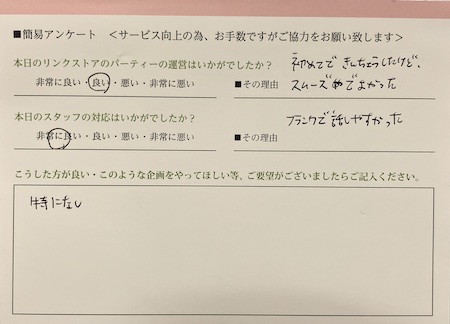 ■簡易アンケート ＜サービス向上の為、お手数ですがご協力をお願い致します＞
本日のリンクストアのパーティーの運営はいかがでしたか？
初めてで きんちょうしたけど、
非常に良い・良い・悪い・非常に悪い
■その理由
スムーズめでよかった
本日のスタッフの対応はいかがでしたか？
フランクで話しやすかった
非常に良い・良い・悪い・非常に悪い
■その理由
こうした方が良い・このような企画をやってほしい等、ご要望がございましたらご記入ください。
特になし